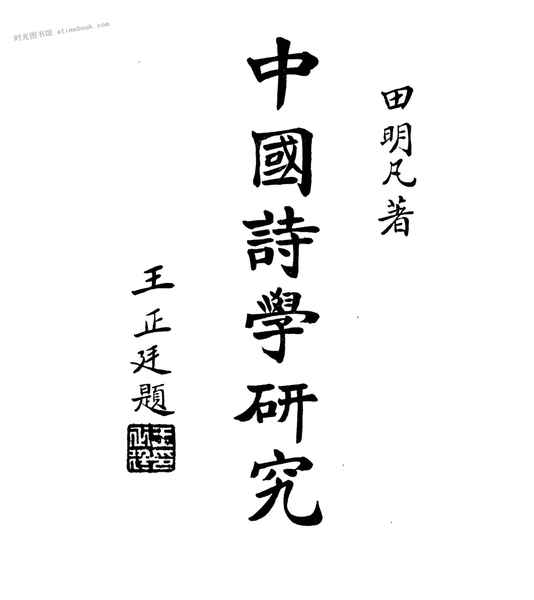 田明凡著
中國詩學研究
王正廷題
时光图书馆 atimebook.com